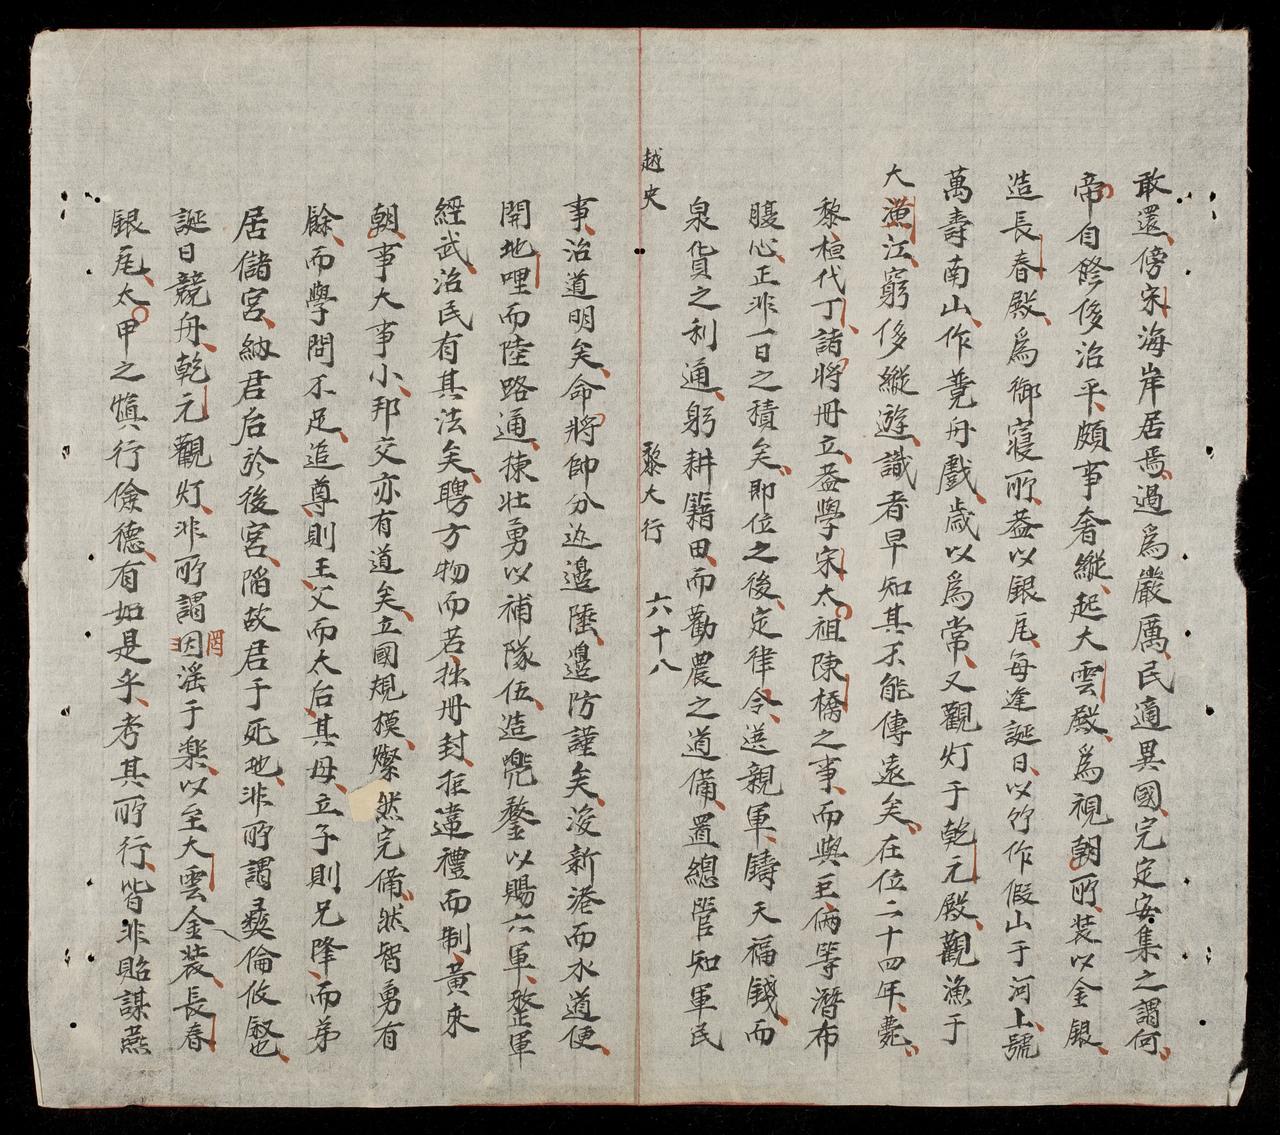 敢還傍宋海岸居焉過爲嚴厲民適異國完定安集之謂何
帝自修侈治平頗事奢縱起大雲殿爲視朝所裝以金銀
造長春殿爲御寢所葢以銀瓦每逢誕日以竹作假山于河上號
萬壽南山作競舟戲歲以爲常又觀灯于乾元殿觀漁于
大漁江窮侈縱遊識者早知其不能傳遠矣在位二十四年薨
黎桓代丁諸將冊立葢學宋太祖陳橋之事而與巨俩等潛布
腹心正非一日之積矣即位之後定律令選親軍鑄天福錢而
泉貨之利通躬耕籍田而勸農之道備置總管知軍民
越史 黎大行 六十八
事治道明矣命將帥分巡邊陲邊防謹矣浚新港而水道便
開地哩而陸路通揀壯勇以補隊伍造兜鍪以賜六軍整軍
經武治民有其法矣聘方物而若拙冊封拒違禮而制黃來
朝事大事小邦交亦有道矣立國規模燦然完備然智勇有
餘而學問不足追尊則王父而太后其母立子則兄隆而弟
居儲宮納君后於後宮陷故君于死地非所謂彜倫攸斁也
誕日競舟乾元觀灯非所謂罔淫于樂以至大雲金裝長春
銀瓦太甲之愼行儉德有如是乎考其所行皆非貽謀燕